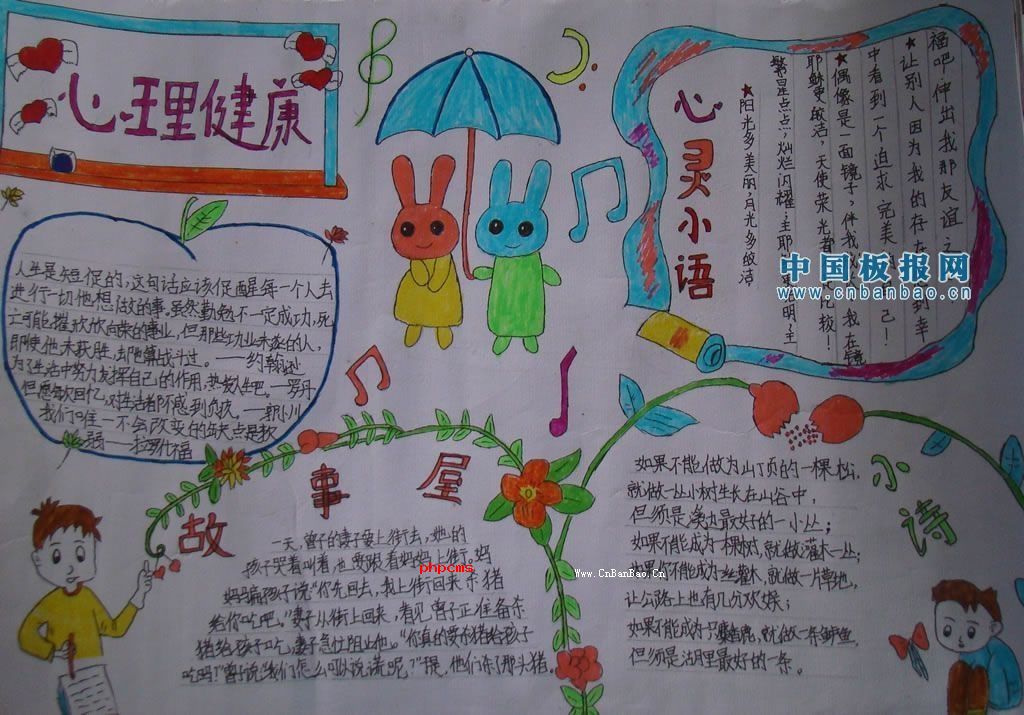 心理健康
人生是短促的,这句话应该促醒每一个人去
进行一切他想做的事。虽然勤勉不一定成功,死
亡可能摧折欣欣向荣的事业,但那些功业未遂的人,
即使他未获胜,去陀算战斗过。——约翰逊
为了生活中努力发挥自己的作用,热爱人生吧。——罗丹
但愿每次回忆,对生活都不感到负疚。——郭小川
我们唯一不会改变的缺点是软
弱——拉罗什福
心灵小语
福吧,伸出我那友谊之
★让别人因为我的存在感到幸
中看到一个追求完美的自己!
★偶像是一面镜子,伴我
我在镜
耶稣更皎洁,天使荣光
比较!
繁星点点,灿烂闪耀;主耶
光明;主
★阳光多美丽,月光多皎洁
中国板报网
www.cnbanbao.cn
故事屋
一天,曾子的妻子要上街去,她的
孩子哭着叫着也要跟着妈妈上街。妈
妈骗孩子说“你先回去,我上街回来杀猪
给你吃吧。”妻子从街上回来,看见曾子正准备杀
猪给孩子吃,妻子急忙阻止他。“你真的要杀猪给孩子
吃吗?”曾子说“我们怎么可以说谎呢?”于是,他们杀了那头猪。
phpcms
www.CnBanBao.Cn
小诗
如果不能做为山顶的一棵松,
就做一丛小树生长在山谷中,
但须是溪边最好的一小丛;
如果不能成为一棵树,就做灌木一丛;
如果不能成为丛灌木,就做一片草地,
让公路上也有几分欢娱;
如果不能成为只麝香鹿,就做一条鲈鱼,
但须是湖里最好的一条。